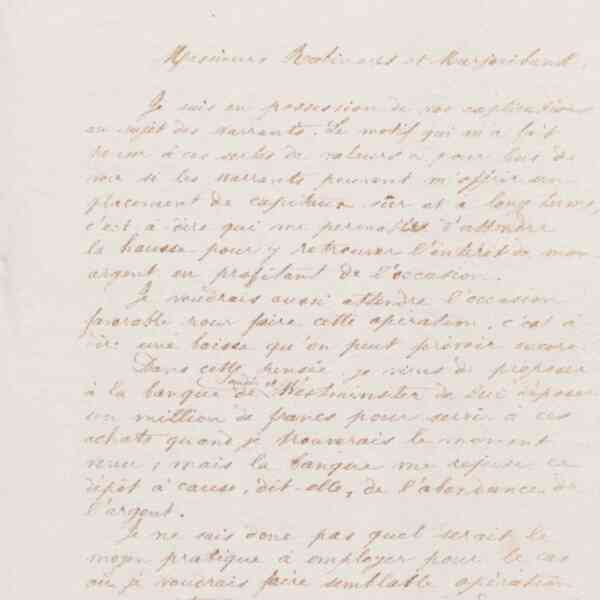 Messieurs et Marjoribank,
Je suis en possession de vos explications
au sujet des warrants. Le motif qui m'a fait
à ces sortes de valeurs a pour but de
voir si les warrants peuvent m'offrir un
placement de capitaux sûr et à long terme,
c'est à dire qui me permette d'attendre
la hausse pour y retrouver l'intérêt de mon
argent en profitant de l'occasion.
Je voudrais aussi attendre l'occasion
favorable pour faire cette opération, c'est à
dire une baisse qu'on peut prévoir encore.
Dans cette pensée je viens de proposer
à la banque de Westminster de lui déposer
un million de francs pour servir à ces
achats quand je trouverais le moment
venu; mais la banque me refuse ce
dépôt à cause, dit-elle, de l'abondance de
l'argent.
Je ne sais donc pas quel serait le
moyen pratique à employer pour le cas
où je voudrais faire semblable opération